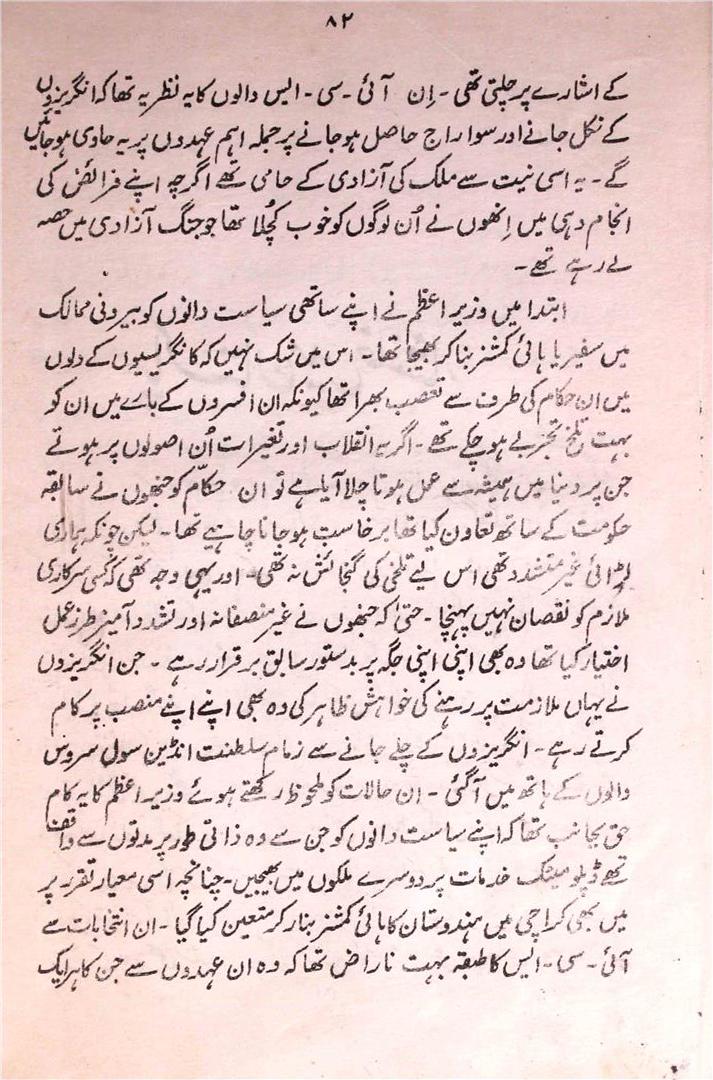 ۸۲
کے اشارے پر چلتی تھی ۔ اِن آئی ۔ سی ۔ ایس والوں کا یہ نظریہ تھا کہ انگریزوں
کے نکل جانے اور سواراج حاصل ہو جانے پر جملہ اہم عہدوں پر یہ حاوی ہو جائیں
گے ۔ یہ اسی نیت سے ملک کی آزادی کے حامی تھے اگرچہ اپنے فرائض کی
انجام دہی میں اِنھوں نے اُن لوگوں کو خوب کُچلا تھا جو جنگ آزادی میں حصہ
لے رہے تھے ۔
ابتدا میں وزیر اعظم نے اپنے ساتھی سیاست دانوں کو بیرونی ممالک
میں سفیر یا ہائی کمشنر بنا کر بھیجا تھا ۔ اس میں شک نہیں کہ کانگریسیوں کے دلوں
میں ان حکام کی طرف سے تعصب بھرا تھا کیونکہ ان افسروں کے بارے میں ان کو
بہت تلخ تجربے ہو چکے تھے ۔ اگر یہ انقلاب اور تغیرات اُن اصولوں پر ہوتے
جن پر دنیا میں ہمیشہ سے عمل ہوتا چلا آیا ہے تو ان حکام کو جنھوں نے سابقہ
حکومت کے ساتھ تعاون کیا تھا برخاست ہو جانا چاہیے تھا ۔ لیکن چونکہ ہماری
لڑائی غیر متشدد تھی اس لیے تلخی کی گنجائش نہ تھی ۔ اور یہی وجہ تھی کہ کسی سرکاری
ملازم کو نقصان نہیں پہنچا ۔ حتیٰ کہ جنھوں نے غیر منصفانہ اور تشدد آمیز طرز عمل
اختیار کیا تھا وہ بھی اپنی اپنی جگہ پر بدستور سابق برقرار رہے ۔ جن انگریزوں
نے یہاں ملازمت پر رہنے کی خواہش ظاہر کی وہ بھی اپنے اپنے منصب پر کام
کرتے رہے ۔ انگریزوں کے چلے جانے سے زمام سلطنت انڈین سول سروس
والوں کے ہاتھ میں آ گئی ۔ ان حالات کو ملحوظ رکھتے ہوئے وزیر اعظم کا یہ کام
حق بجانب تھا کہ اپنے سیاست دانوں کو جن سے وہ ذاتی طور پر مدتوں سے واقف
تھے ڈپلومیٹک خدمات پر دوسرے ملکوں میں بھیجیں ۔ چنانچہ اسی معیار تقرر پر
میں بھی کراچی میں ہندوستان کا ہائی کمشنر بنا کر متعین کیا گیا ۔ ان انتخابات سے
آئی ۔ سی ۔ ایس کا طبقہ بہت ناراض تھا کہ وہ ان عہدوں سے جن کا ہر ایک